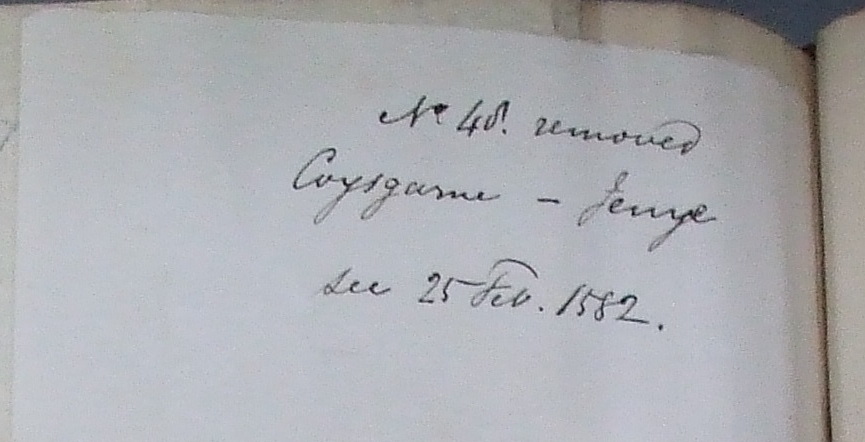 No 48. removed
Coysgarne - Jenye
see 25 Feb. 1582.